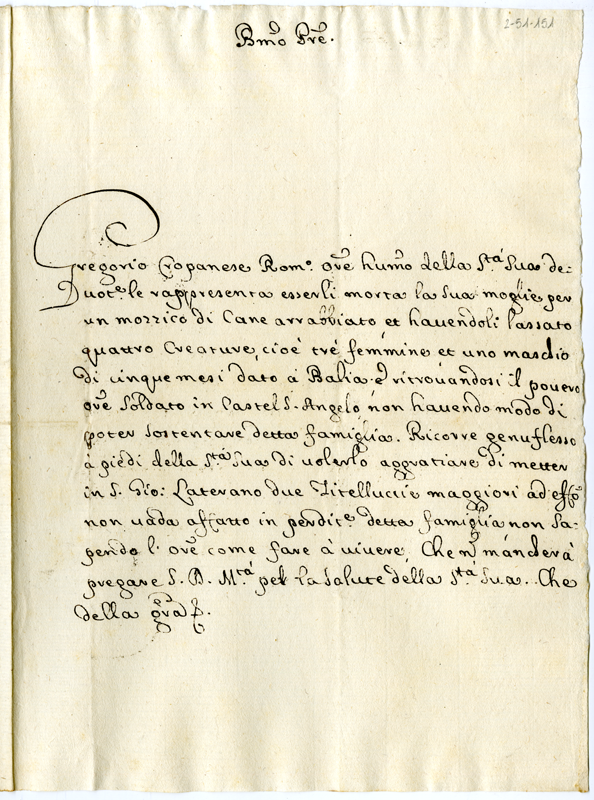 2-51-151
Bmo Pre.
Gregorio Cropanese Romo. ore humo della Sta Sua de:
Duote. le rappresenta esserli morta la sua moglie per
un morzico di Cane arrabbiato et havendoli lassato
quattro Creature, cioè trè femmine et uno maschio
di cinque mesi dato à Balia. è ritrovandosi il povero
ore Soldato in Castel S. Angelo, non havendo modo di
poter sostentare detta famiglia. Ricorre genuflesso
à piedi della Sta Sua di volerlo aggratiare di metter
in S. Gio: Laterano due Zitelluccie maggiori ad
non vada affatto in perdite. detta famiglia non sa-
pendo l'ore come fare à vivere, Che n mancherà
pregare S. D. Mtà pel la salute della Sta Sua. Che
della gra